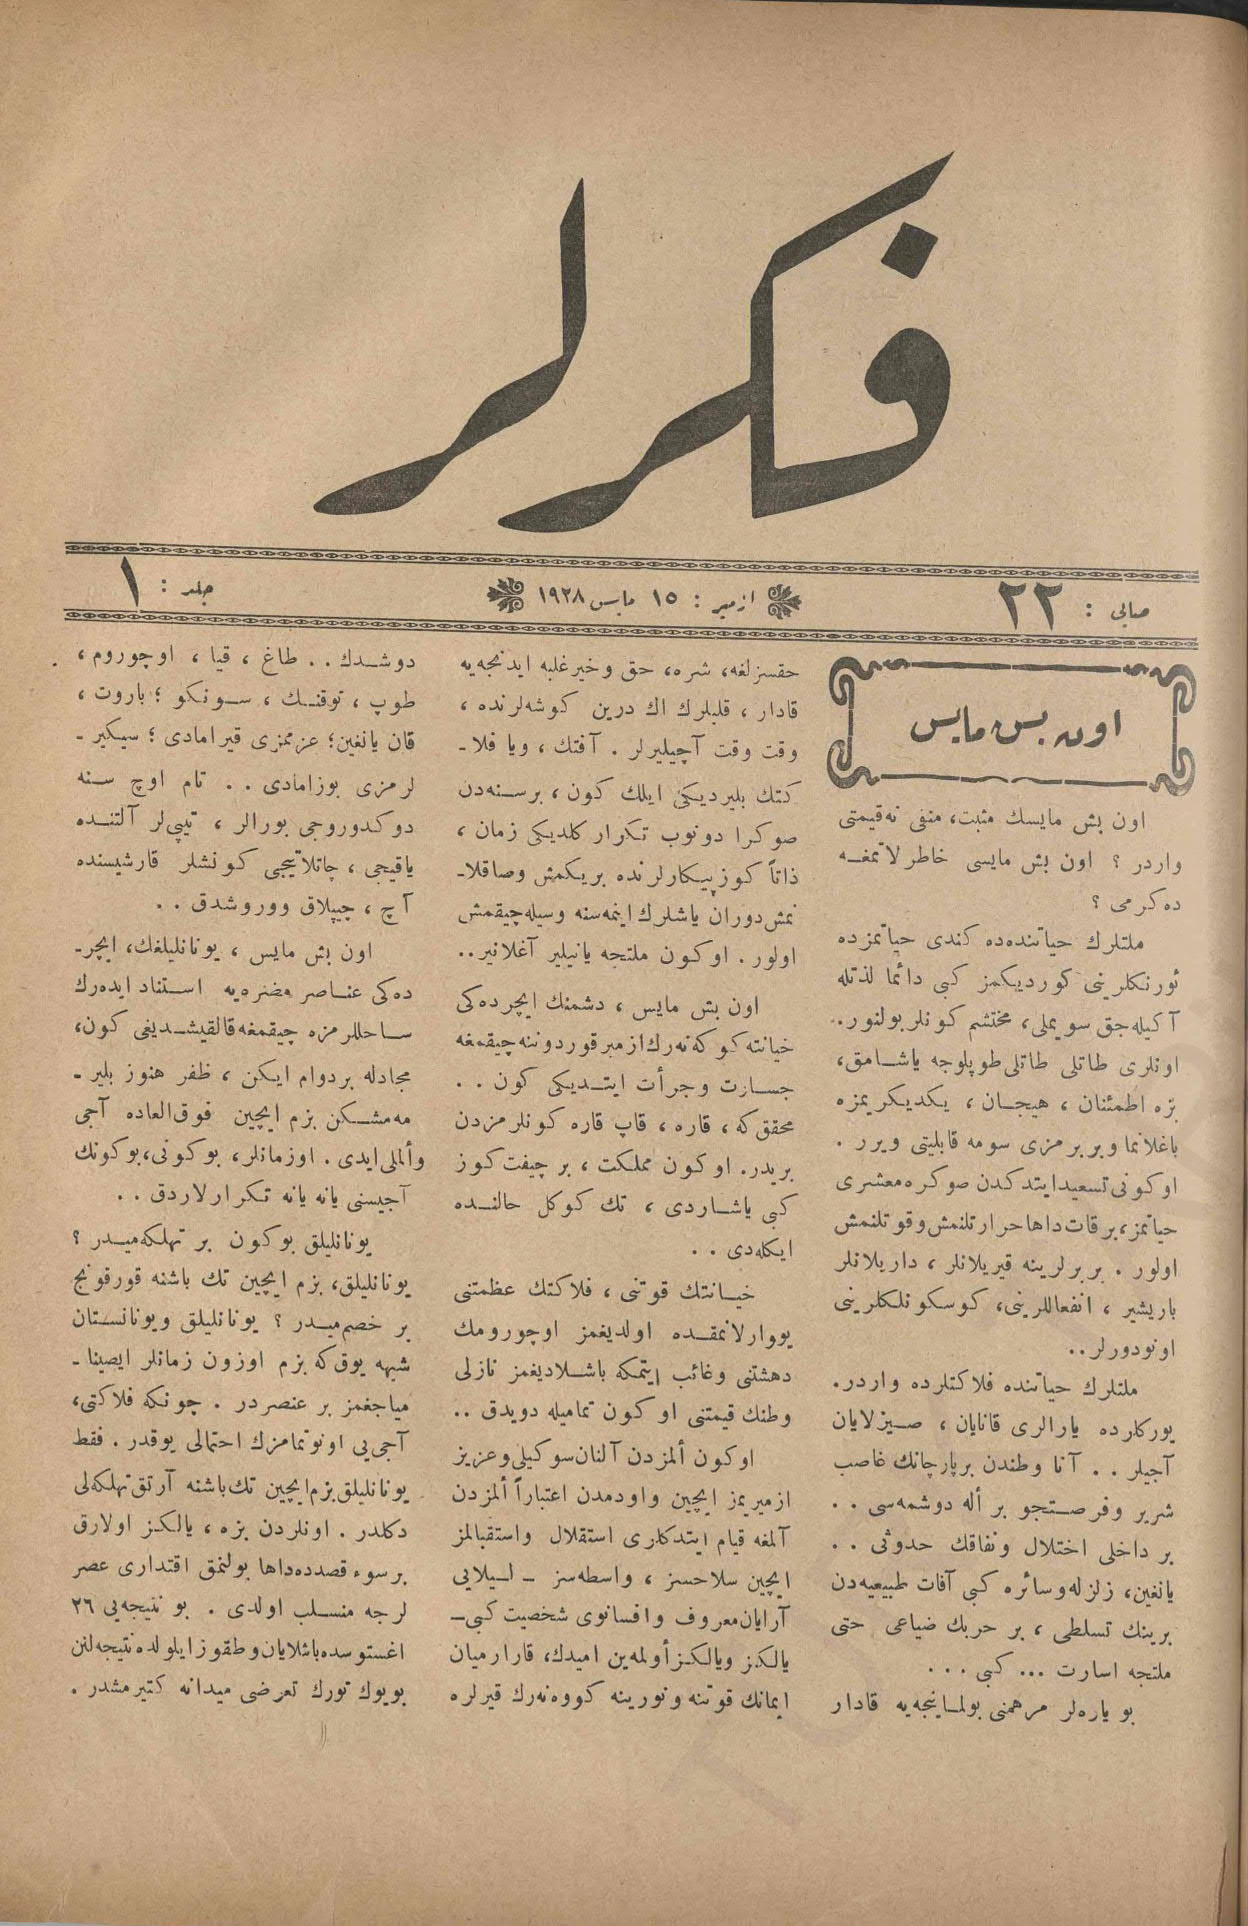 فكرلر
صايى : ٢٢
ازمير : ١٥ مايس ١٩٢٨
جلد : ١
اون بش مايس
اون بش مايسك مثبت، منفى نه‌قيمتى
واردر ؟ اون بش مايسى خاطرلاتمغه
ده‌كرمى ؟
ملتلرك حياتنده‌ده كندى حياتمزده
ئورنكلرينى كورديكمز كبى دائما لذتله
آكيله‌جق سويملى، محتشم كونلر بولنور.
اونلرى طاتلى طاتلى طوپلوجه ياشامق،
بزه اطمئنان ، هيجان ، يكديكريمزه
باغلانما وبربرمزى سومه قابليتى ويرر .
اوكونى تسعيد ايتدكدن صوكره معشرى
حياتمز، برقات داها حرارتلنمش وقوتلنمش
اولور . بربرلرينه قيريلانلر ، داريلانلر
باريشير ، انفعاللرينى، كوسكونلكلرينى
اونودورلر..
ملتلرك حياتنده فلاكتلرده واردر.
يوركلرده يارالرى قانايان ، صيزلايان
آجيلر . . آنا وطندن برپارچانك غاصب
شرير وفرصتجو بر أله دوشمه‌سى . .
بر داخلى اختلال ونفاقك حدوثى . .
يانغين، زلزله‌وسائره كبى آفات طبيعيه‌دن
برينك تسلطى ، بر حربك ضياعى حتى
ملتجه اسارت ... كبى . . .
بو ياره‌لر مرهمنى بولماينجه‌يه قادار
حقسزلغه، شره، حق وخيرغلبه ايدنجه‌يه
قادار ، قلبلرك اك درين كوشه‌لرنده ،
وقت وقت آچيليرلر . آفتك ، ويا فلا-
كتك بليرديكى ايلك كون ، برسنه‌دن
صوكرا دونوب تكرار كلديكى زمان ،
ذاتاً كوزپيكارلرنده بريكمش وصاقلا-
نمش‌دوران ياشلرك اينمه‌سنه وسيله‌چيقمش
اولور . اوكون ملتجه يانيلير آغلانير..
اون بش مايس ، دشمنك ايچرده‌كى
خيانته‌كوكه‌نه‌رك ازمير قوردوننه چيقمغه
جسارت وجرأت ايتديكى كون . .
محقق‌كه ، قاره ، قاپ قاره كونلرمزدن
بريدر. اوكون مملكت ، بر چيفت كوز
كبى ياشاردى ، تك كوكل حالنده
ايكله‌دى . .
خيانتك قوتنى ، فلاكتك عظمتنى
يووارلانمقده اولديغمز اوچورومك
دهشتنى وغائب ايتمكه باشلاديغمز نازلى
وطنك قيمتنى اوكون تماميله دويدق ..
اوكون ألمزدن آلنان سوكيلى‌وعزيز
ازميريمز ايچين واودمدن اعتباراً ألمزدن
آلمغه قيام ايتدكلرى استقلال واستقبالمز
ايچين سلاحسز ، واسطه‌سز - ليلايى
آرايان معروف وافسانوى شخصيت كبى-
يالكز ويالكزأولمه‌ين اميدك، قارارميان
ايمانك قوتنه ونورينه كووه‌نه‌رك قيرلره
دوشدك . . طاغ ، قيا ، اوچوروم ،
طوپ ، توفنك ، سونكو ؛ باروت ،
قان يانغين؛ عزممزى قيرامادى ؛ سيكير-
لرمزى بوزامادى . . تام اوچ سنه
دوكدوروجى بورالر ، تيپى‌لر آلتنده
ياقيجى ، چاتلاتيجى كونشلر قارشيسنده
آچ ، چيپلاق ووروشدق . .
اون بش مايس ، يونانليلغك، ايچر-
ده‌كى عناصر مضره‌يه استناد ايده‌رك
ساحللرمزه چيقمغه قالقيشديغى كون،
مجادله بردوام ايكن ، ظفر هنوز بلير-
مه‌مشكن بزم ايچين فوق‌العاده آجى
وألملى‌ايدى . اوزمانلر، بوكونى، بوكونك
آجيسنى يانه يانه تكرارلاردق . .
يونانليلق بوكون بر تهلكه‌ميدر ؟
يونانليلق، بزم ايچين تك باشنه قورقونج
بر خصم‌ميدر ؟ يونانليلق ويونانستان
شبهه يوق‌كه بزم اوزون زمانلر ايصينا-
مياجغمز بر عنصردر . چونكه فلاكتى،
آجى‌يى اونوتمامزك احتمالى يوقدر . فقط
يونانليلق بزم‌ايچين تك‌باشنه آرتق تهلكه‌لى
دكلدر . اونلردن بزه ، يالكز اولارق
برسوء قصدده‌داها بولنمق اقتدارى عصر
لرجه منسلب اولدى . بو نتيجه‌يى ٢٦
اغستوسده‌باشلايان‌وطقوز ايلولده‌نتيجه‌لنن
بويوك تورك تعرضى ميدانه كتيرمشدر .